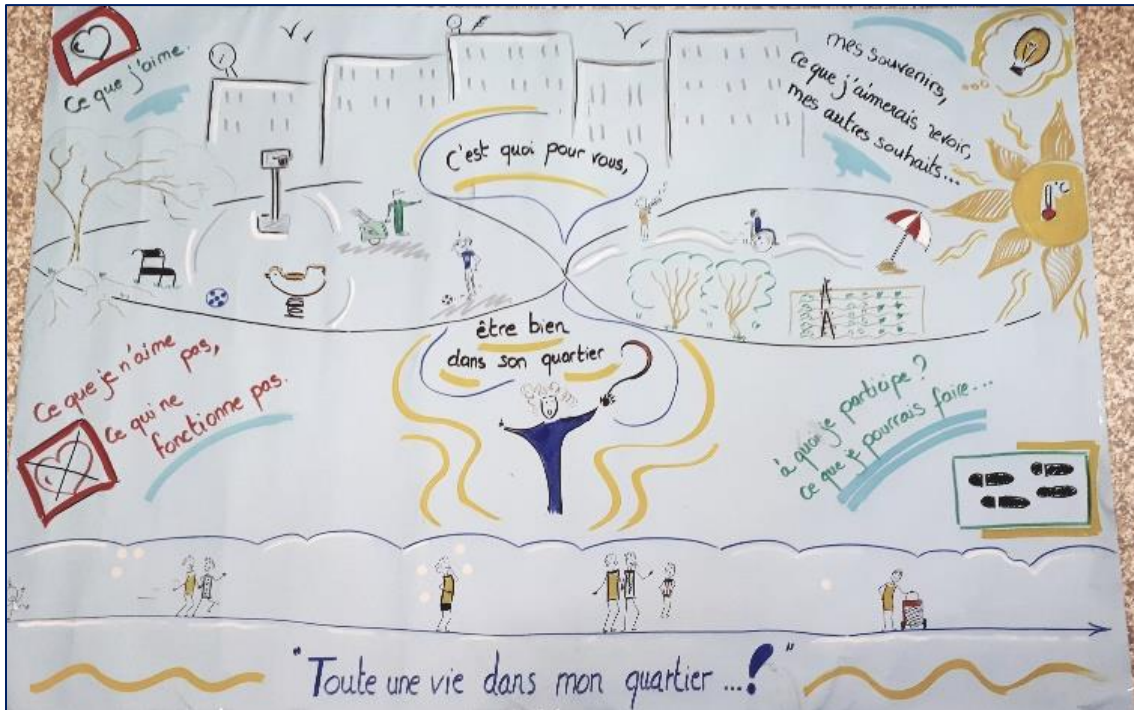 Ce que j'aime.
mes souvenirs,
ce que j'aimerais revoir,
mes autres souhaits...
°C
c'est quoi pour vous,
être bien
dans son quartier
Ce que je n'aime pas,
Ce qui ne
fonctionne pas.
à quoi je participe?
ce que je pourrais faire...
"Toute une vie dans mon quartier...!"